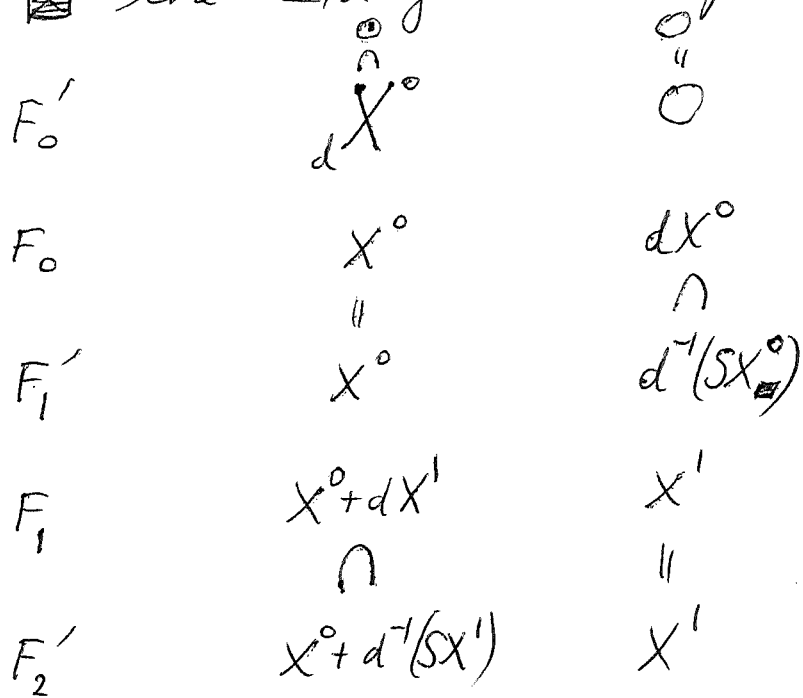 0 0
∩ ॥
F₀′ dX⁰ 0
F₀ X⁰ dX⁰
॥ ∩
F₁′ X⁰ d⁻¹(SX⁰)
F₁ X⁰+dX¹ X¹
∩ ॥
F₂′ X⁰+d⁻¹(SX¹) X¹